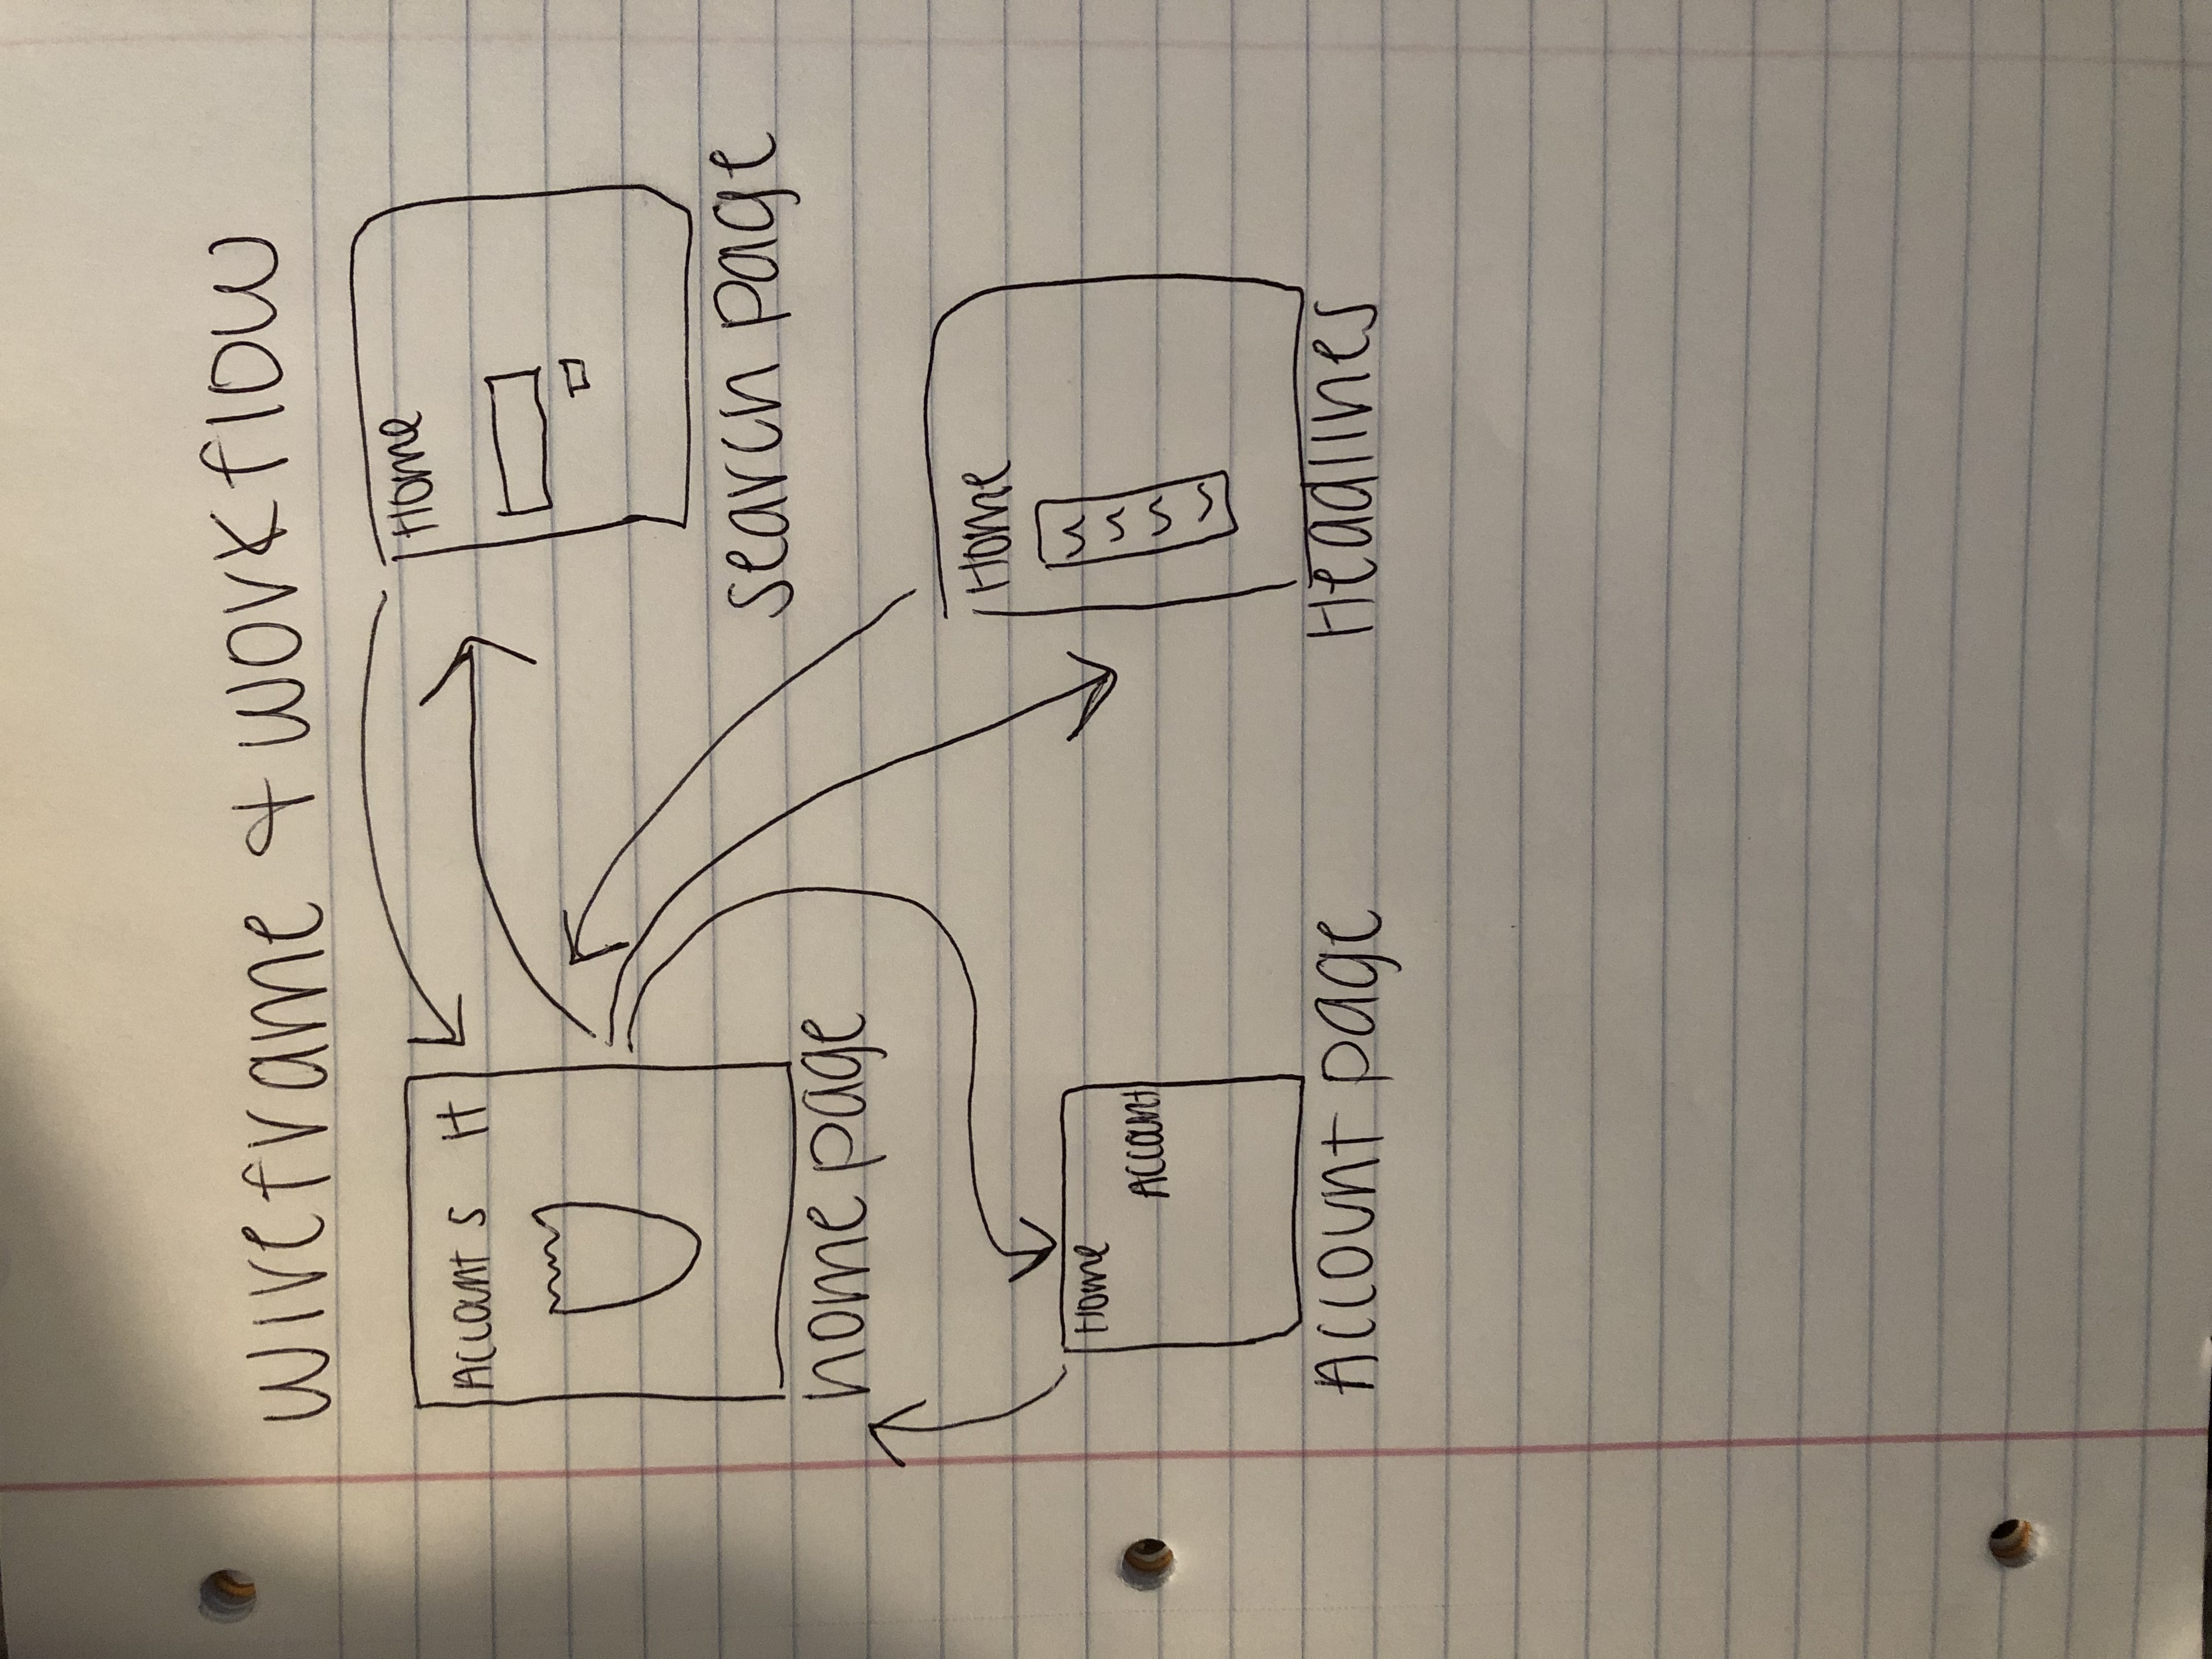 wireframe & workflow
Account S H
Home
search page
home page
Home
Account
Account page
Home
Headlines